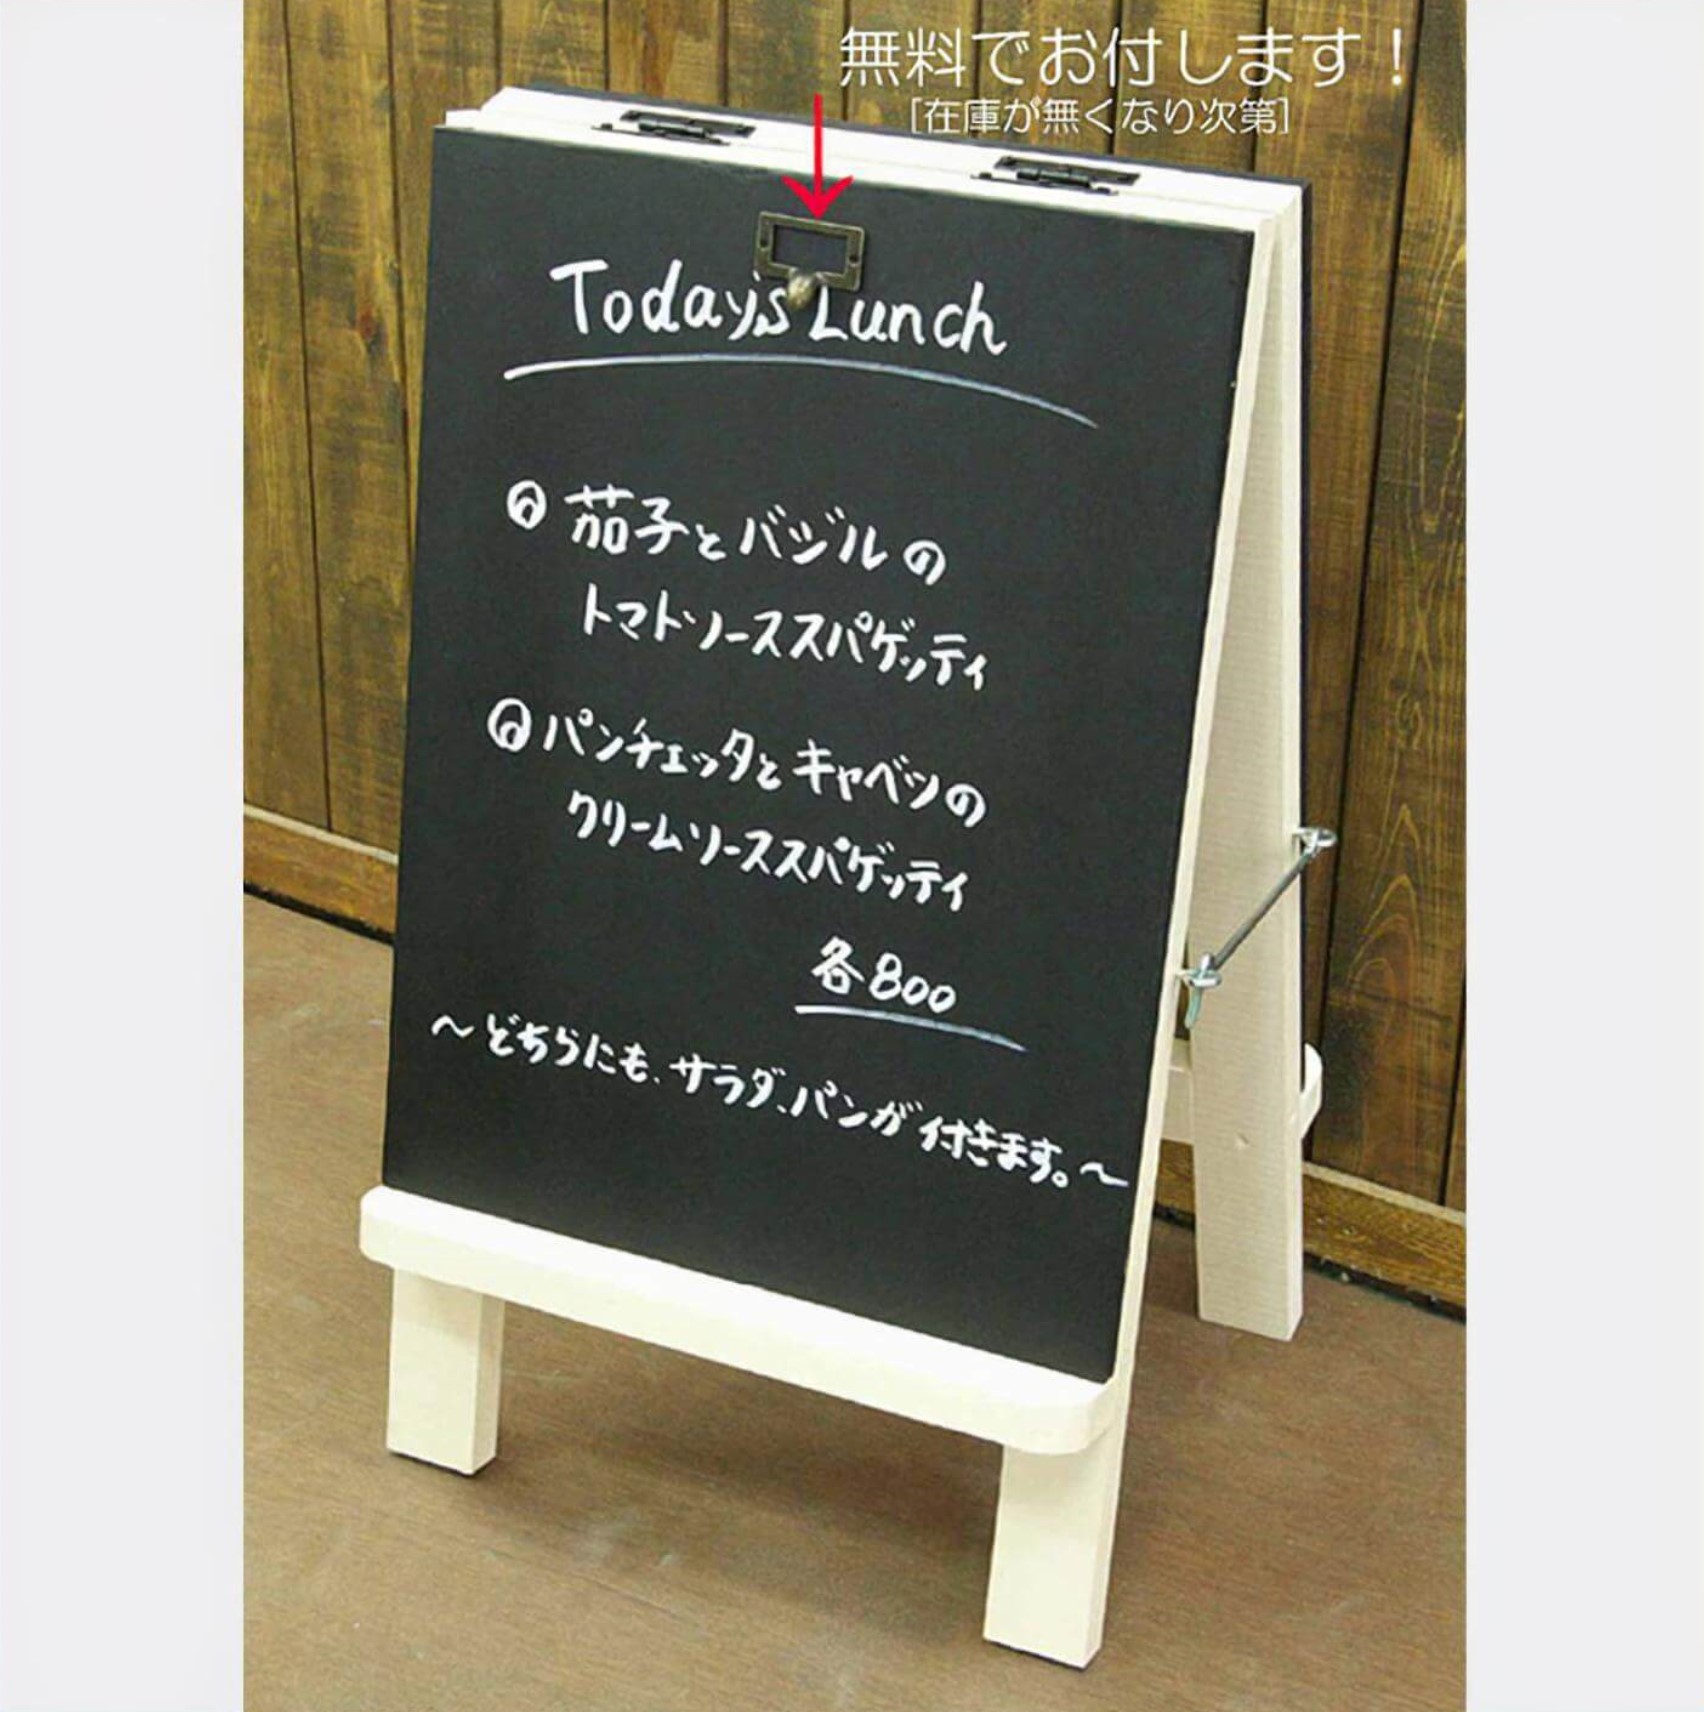 無料でお付します！
[在庫が無くなり次第]
Today's Lunch
茄子とバジルの
トマトソーススパゲッティ
パンチェッタとキャベツの
クリームソーススパゲッティ
各800
～どちらにも、サラダ、パンが付きます。～